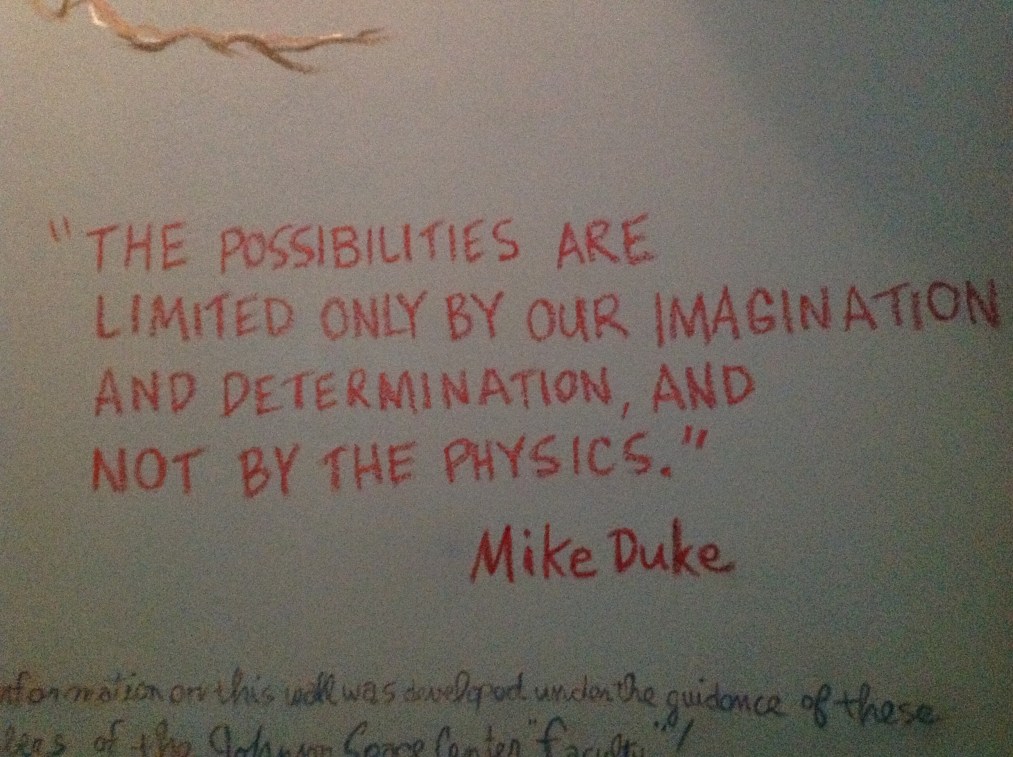 "THE POSSIBILITIES ARE
LIMITED ONLY BY OUR IMAGINATION
AND DETERMINATION, AND
NOT BY THE PHYSICS."
Mike Duke
nformation on this wall was developed under the guidance of these
of the Johnson Space Center "faculty"